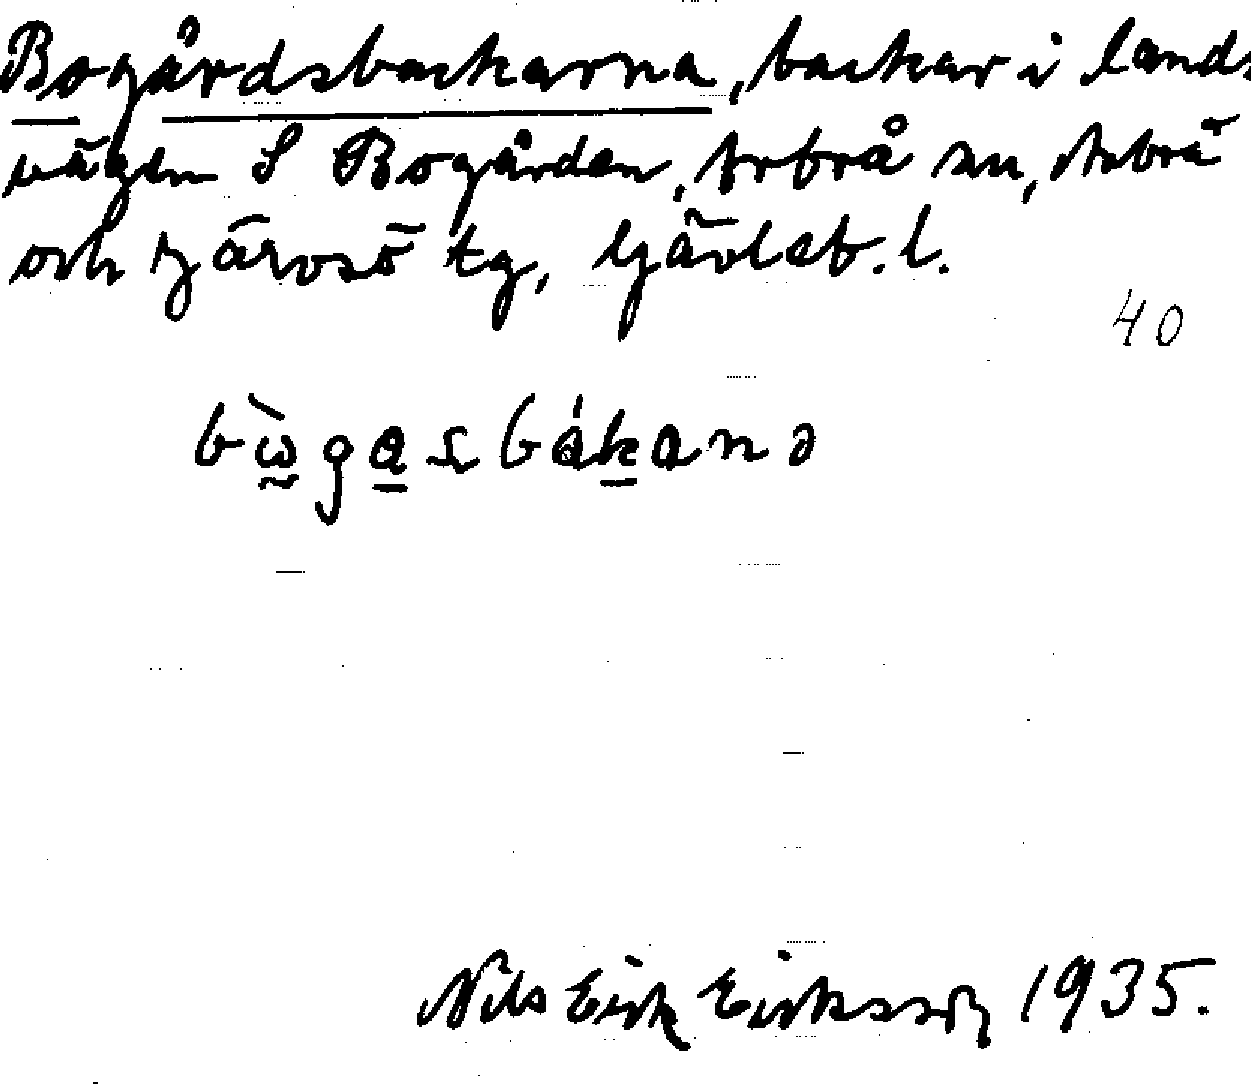 Bogårdsbackarna, backar i lands
vägen S Bogården, Arbrå sn, Arbrå
och Järvsö tg, Gävleb. l.
40
bὼgasbákanə
Nils Erik Eriksson 1935.